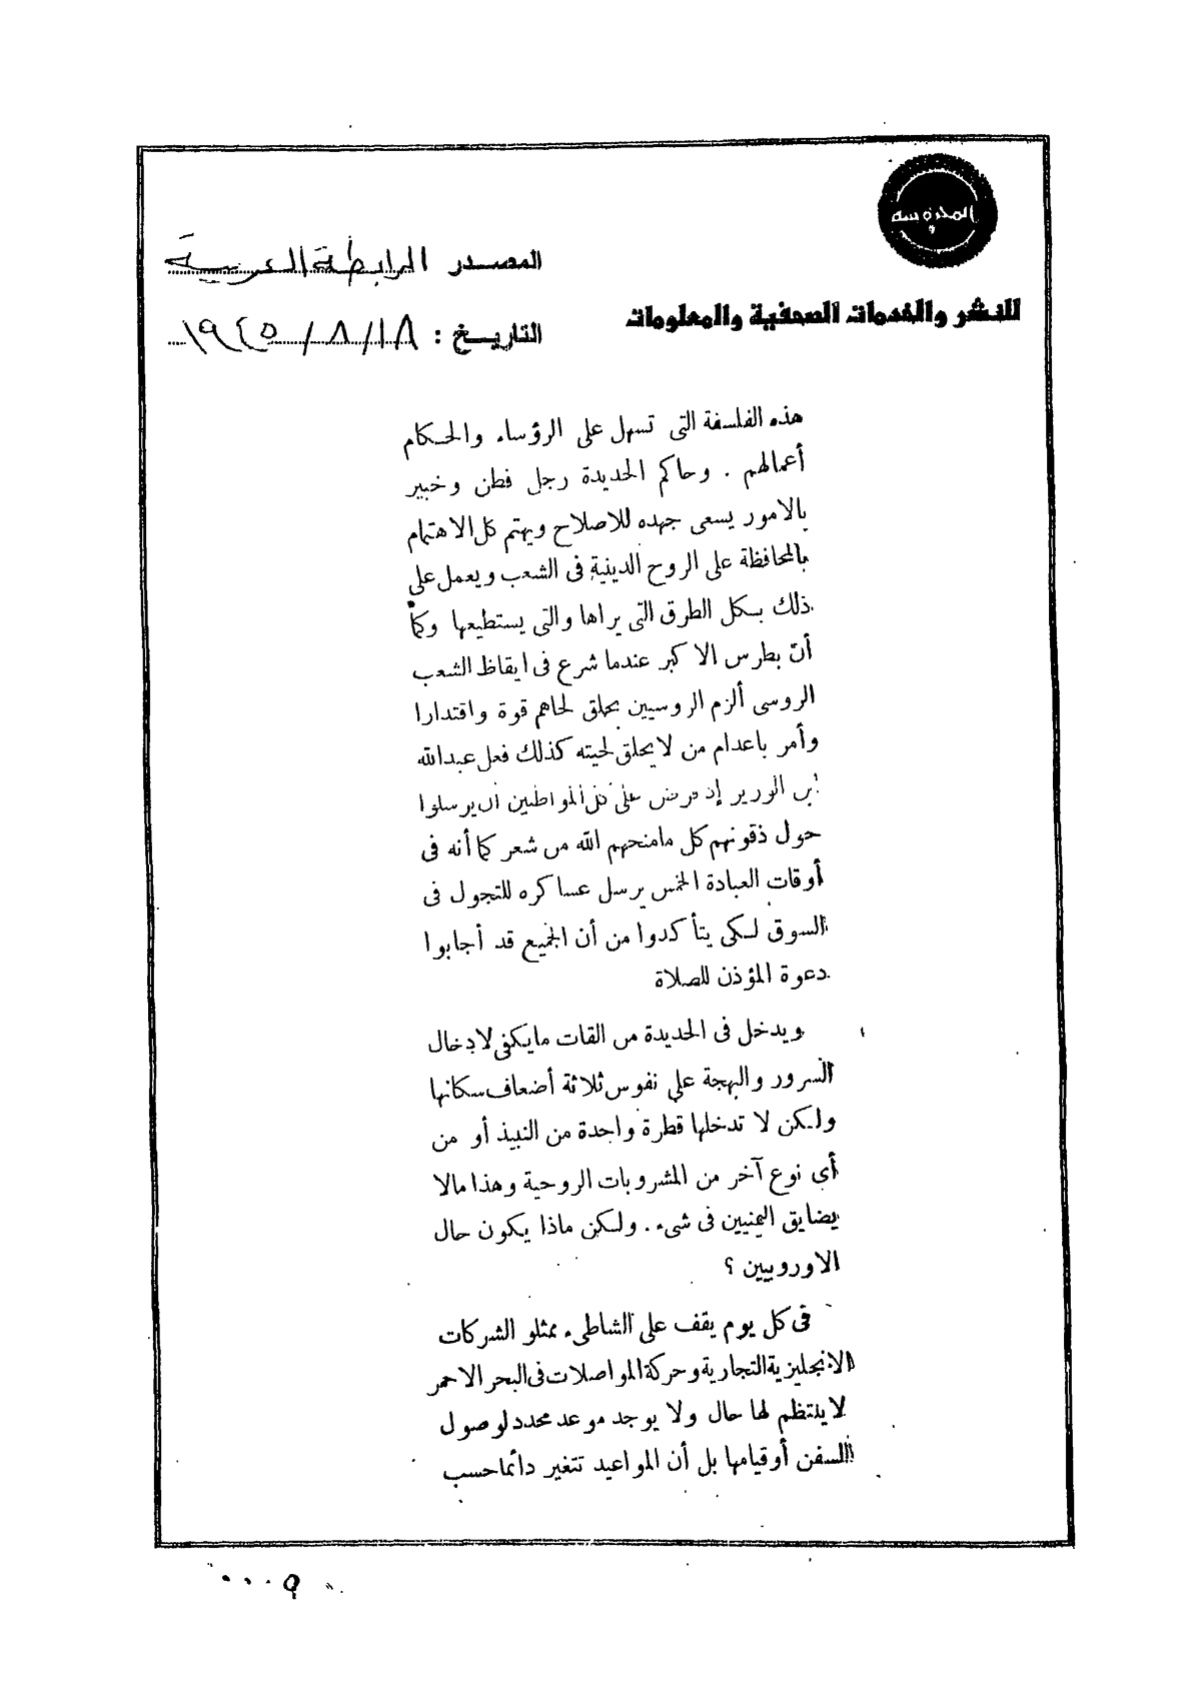 المحروسة
المصدر الرابطة العربية
للنشر والخدمات الصحفية والمعلومات
التاريخ : ١٨ / ٨ / ١٩٤٥
هذه الفلسفة التى تسهل على الرؤساء والحكام
أعمالهم . وحاكم الحديدة رجل فطن وخبير
بالامور يسعى جهده للاصلاح ويهتم كل الاهتمام
بالمحافظة على الروح الدينية فى الشعب ويعمل على
ذلك بكل الطرق التى يراها والتى يستطيعها وكما
أنّ بطرس الاكبر عندما شرع فى ايقاظ الشعب
الروسى ألزم الروسيين بحلق لحاهم قوة واقتدارا
وأمر باعدام من لايحلق لحيته كذلك فعل عبدالله
ابن الوزير إذ فرض على كل المواطنين أن يرسلوا
حول ذقونهم كل مامنحهم الله من شعر كما أنه فى
أوقات العبادة الخمس يرسل عساكره للتجول فى
السوق لكى يتأكدوا من أن الجميع قد أجابوا
دعوة المؤذن للصلاة
ويدخل فى الحديدة من القات مايكفى لادخال
السرور والبهجة على نفوس ثلاثة أضعاف سكانها
ولكن لا تدخلها قطرة واحدة من النبيذ أو من
أى نوع آخر من المشروبات الروحية وهذا مالا
يضايق اليمنيين فى شىء . ولكن ماذا يكون حال
الاوروبيين ؟
فى كل يوم يقف على الشاطىء ممثلو الشركات
الانجليزية التجارية وحركة المواصلات فى البحر الاحمر
لاينتظم لها حال ولا يوجد موعد محدد لوصول
السفن أوقيامها بل أن المواعيد تتغير دائما حسب
٩٠٠٠